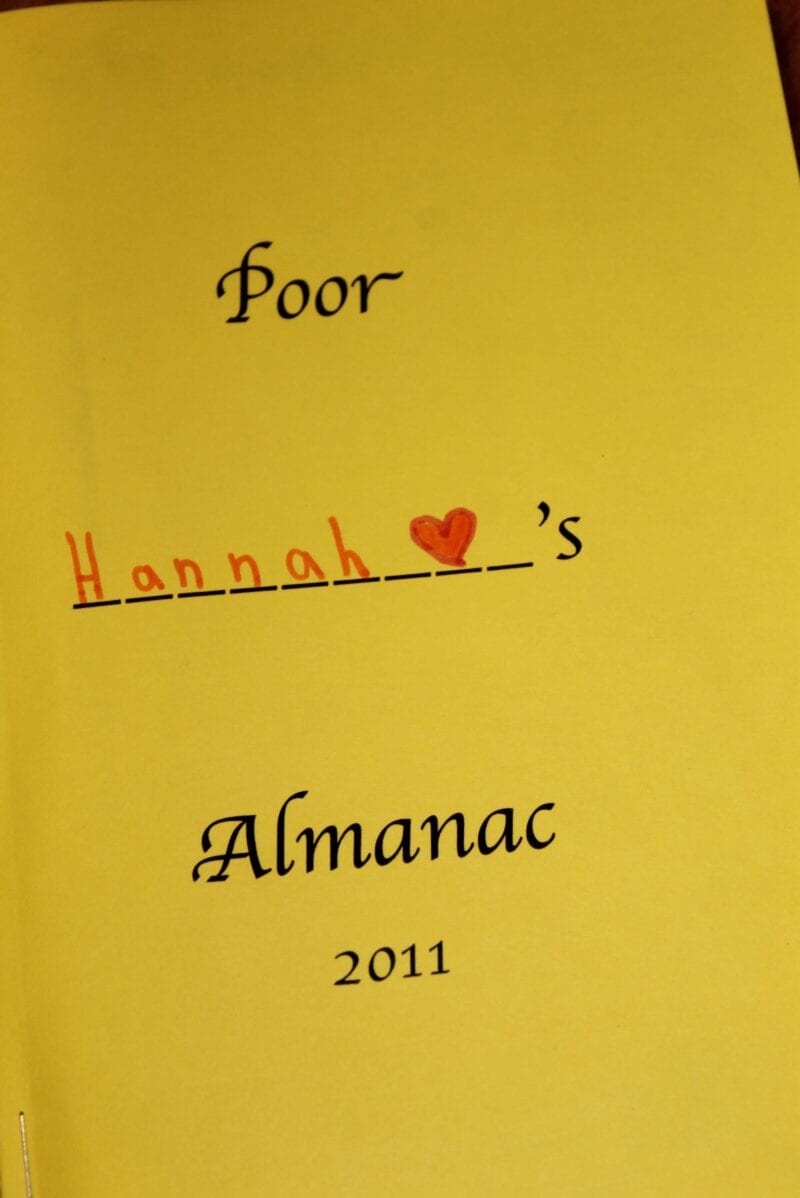 Poor
Hannah ♥'s
Almanac
2011